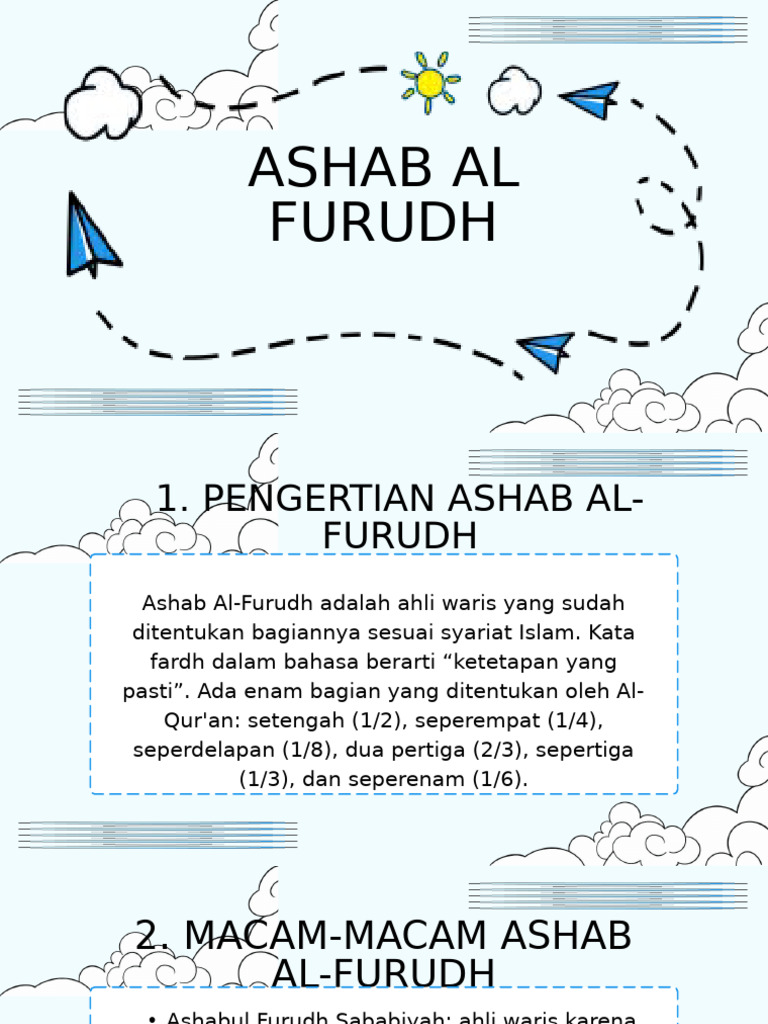 ASHAB AL
FURUDH
1. PENGERTIAN ASHAB AL-
FURUDH
Ashab Al-Furudh adalah ahli waris yang sudah
ditentukan bagiannya sesuai syariat Islam. Kata
fardh dalam bahasa berarti “ketetapan yang
pasti”. Ada enam bagian yang ditentukan oleh Al-
Qur'an: setengah (1/2), seperempat (1/4),
seperdelapan (1/8), dua pertiga (2/3), sepertiga
(1/3), dan seperenam (1/6).
2. MACAM-MACAM ASHAB
AL-FURUDH
• Ashabul Furudh Sababiyah: ahli waris karena